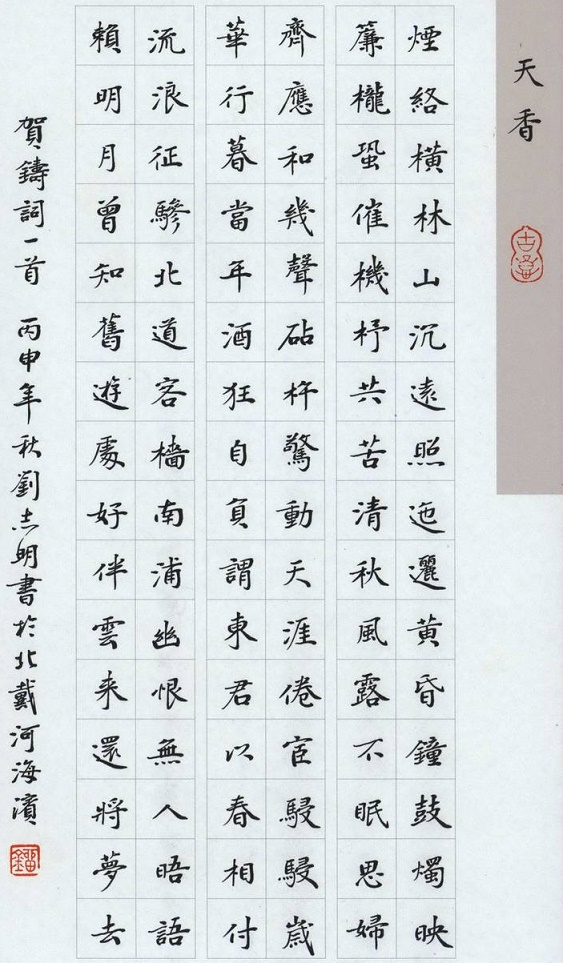 天香
煙絡橫林山沉遠照迤邐黃昏鐘鼓燭映
簾櫳蛩催機杼共苦清秋風露不眠思婦
齊應和幾聲砧杵驚動天涯倦宦駸駸歲
華行暮當年酒狂自負謂東君以春相付
流浪征驂北道客檣南浦幽恨無人晤語
賴明月曾知舊遊處好伴雲来還將夢去
賀鑄詞一首 丙申年秋劉志明書於北戴河海濱